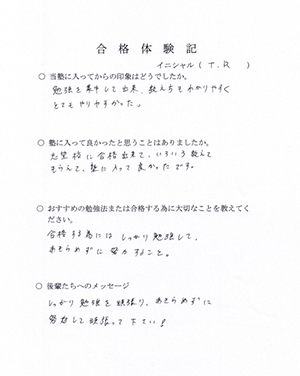 合格体験記
イニシャル（ T. R ）
○ 当塾に入ってからの印象はどうでしたか。
勉強を集中して出来、教え方もわかりやすく
とてもやりやすかった。
○ 塾に入って良かったと思うことはありましたか。
志望校に合格出来て、いろいろ教えて
もらえて、塾に入って良かったです。
○ おすすめの勉強法または合格する為に大切なことを教えてく
ださい。
合格する為にはしっかり勉強して、
あきらめずに努力すること。
○ 後輩たちへのメッセージ
しっかり勉強を頑張り、あきらめずに
努力して頑張って下さい！